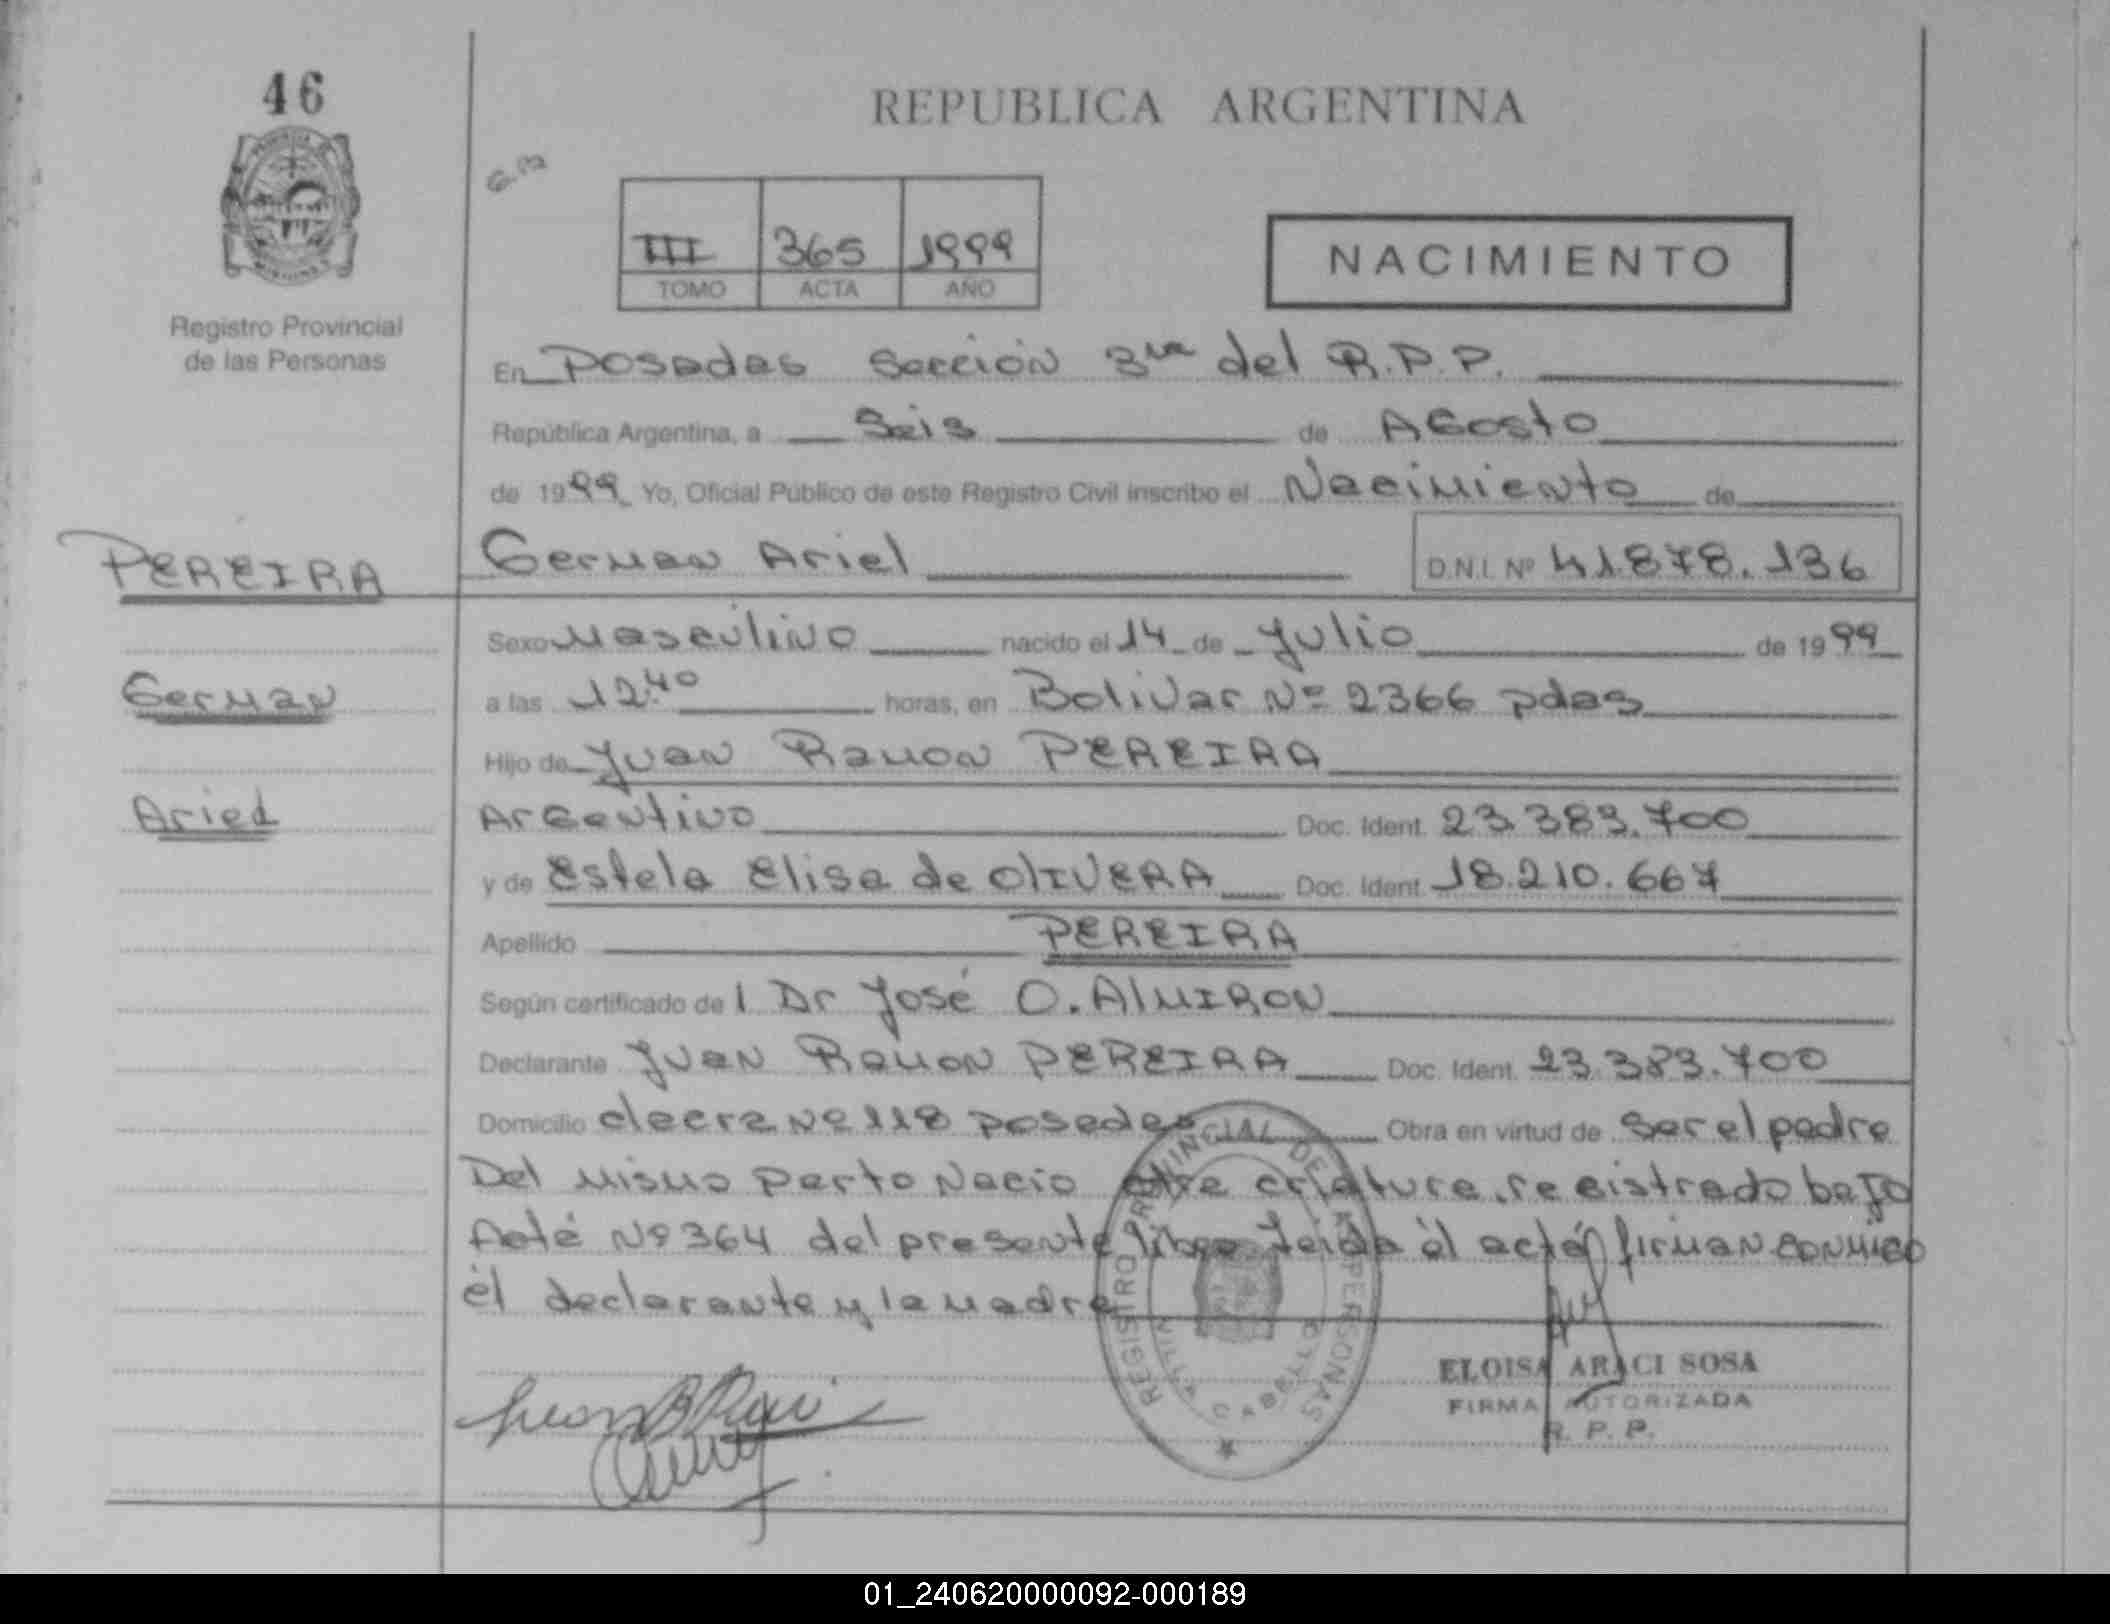 46
REPUBLICA ARGENTINA
III 365 1999
TOMO ACTA AÑO
NACIMIENTO
Registro Provincial
de las Personas
En Posadas Sección 3ra del R.P.P.
República Argentina, a Seis de AGosto
de 1999 Yo, Oficial Público de este Registro Civil inscribo el Nacimiento de
PEREIRA
German Ariel D.N.I. Nº 41.878.136
Sexo Masculino nacido el 14 de Julio de 1999
German
a las 12:40 horas, en Bolivar Nº 2366 pdas
Hijo de Juan Ramon PEREIRA
Ariel
ArGentino Doc. Ident. 23.383.700
y de Estela Elisa de OlIVERA Doc. Ident. 18.210.667
Apellido PEREIRA
Según certificado de l Dr José O. AlMIRON
Declarante Juan Ramon PEREIRA Doc. Ident. 23.383.700
Domicilio chacra Nº 118 posadas Obra en virtud de ser el padre
Del mismo parto Nacio otra criatura, reGistrado bajo
Acta Nº 364 del presente libro leida el acta firman conmiGo
él declarante y la madre
REGISTRO PROVINCIAL DE LAS PERSONAS
CABELLO
ELOISA ARACI SOSA
FIRMA AUTORIZADA
R. P. P.
01_240620000092-000189